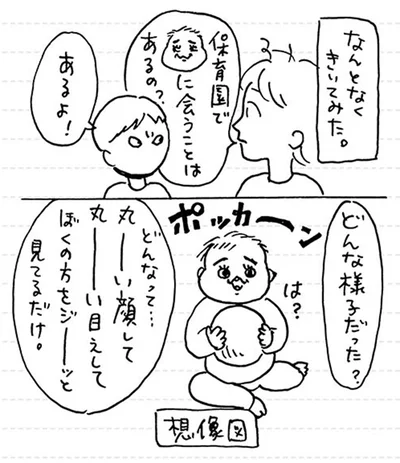 なんとなく
きいてみた。
保育園で
に会うことは
あるの?
あるよ!
どんな様子だった?
ポッカーン
は?
どんなって…
丸ーーい顔して
丸ーーい目えして
ぼくの方をジーーッと
見てるだけ。
想像図